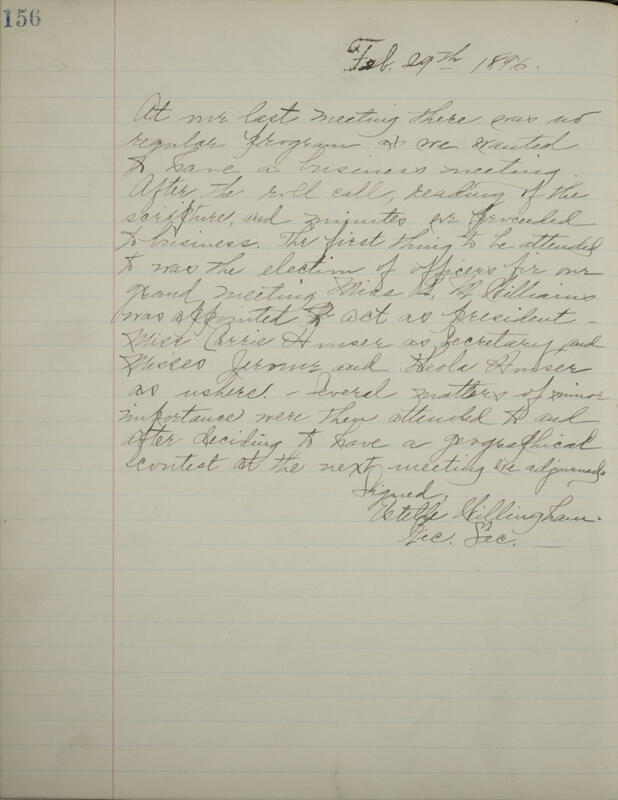 156
Feb. 29th 1896.
At our last meeting there was no
regular program as we wanted
to have a business meeting.
After, the roll call, reading of the
scripture, and minutes we proceeded
to business. The first thing to be attended
to was the election of officers for our
grand meeting. Miss Williams
was appointed to act as President –
Miss Carrie as Secretary, and
Misses Jerome and
as ushers. – Several matters of minor
importance were then attended to and
after deciding to have a geographical
contest at the next meeting we adjourned.
Signed,
Estelle Willingham.
Rec. Sec.